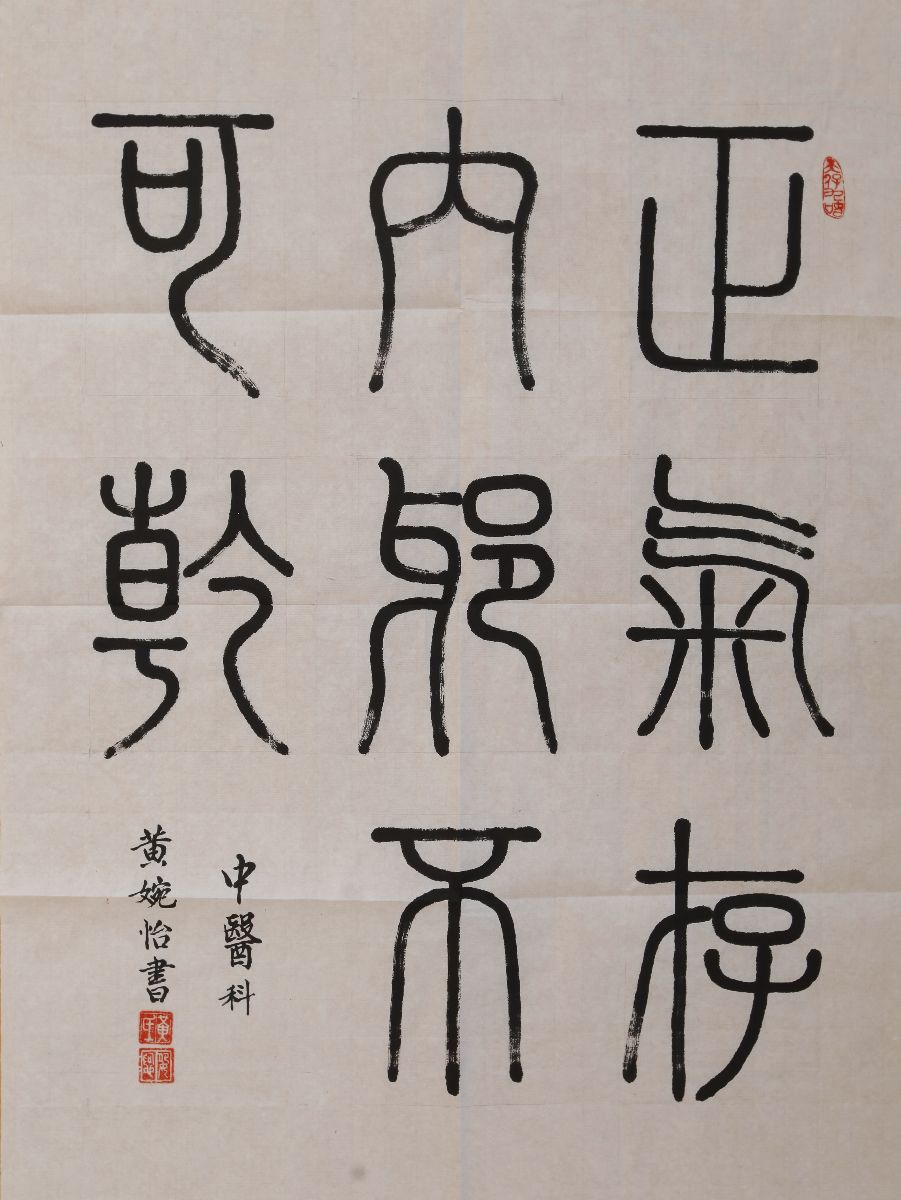 正氣存
內邪不
可乾
中醫科
黃婉怡書